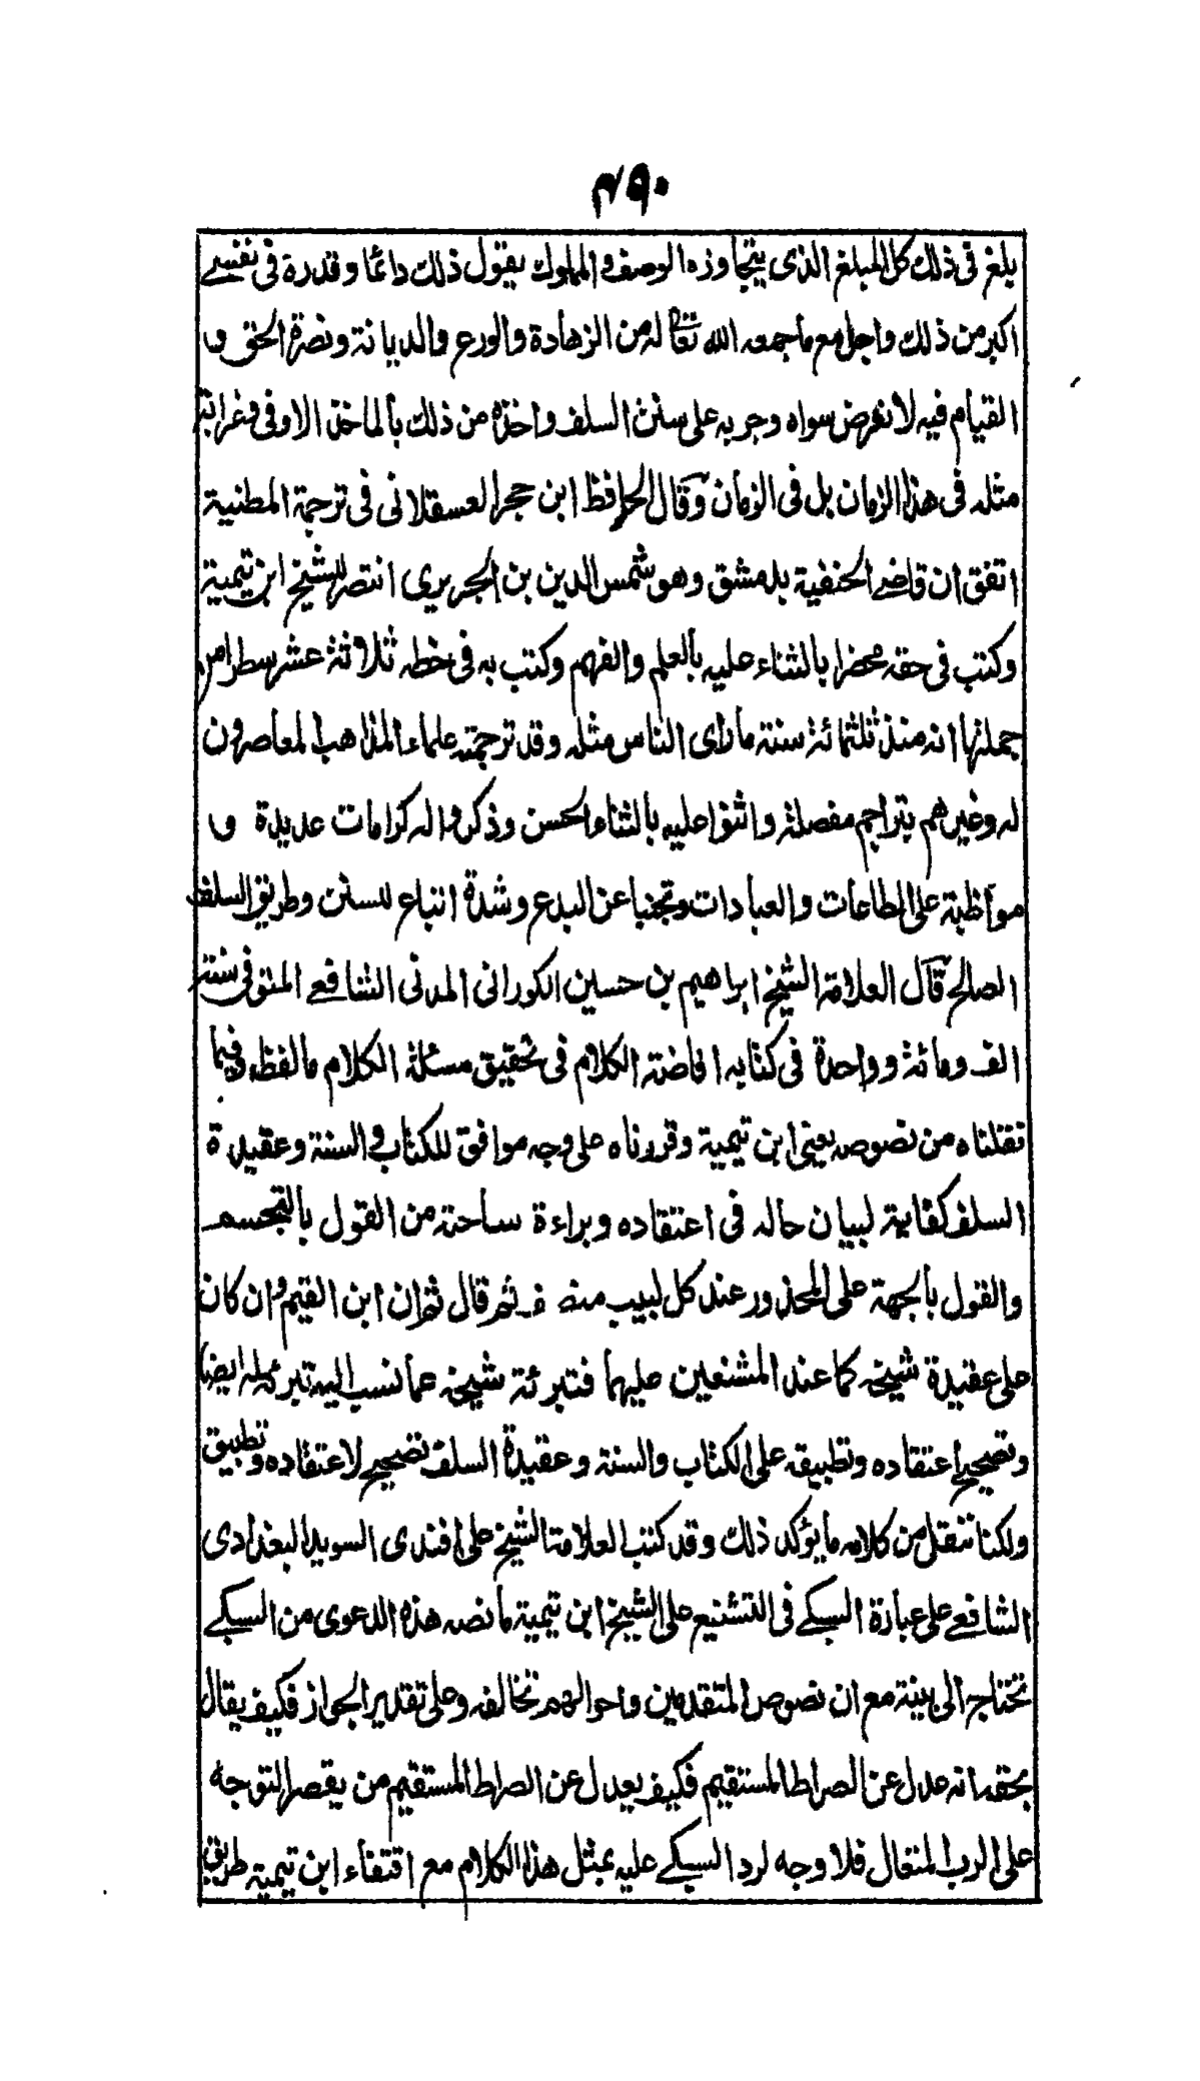 ٤٩٠
يلغ فى ذلك كل المبلغ الذى يتجاوزه الوصف والمملوك يقول ذلك دائما وقدرة فى نفسے
اكبر من ذلك واجل مع ما جمعه الله تعالى له من الزهادة والورع والديانة ونصرة الحق و
القيام فيه لا نغرض سواه وجريه على سنن السلف واخذه من ذلك بالماخذ الاوفى وغرابة
مثله فى هذا الزمان بل فى الزمان وقال الحافظ ابن حجر العسقلانى فى ترجمة المطنبة
اتفق ان قاضے الحنفية بدمشق وهو شمس الدين بن الجريري انتصر للشيخ ابن تيمية
وكتب فى حقه محضرا بالثناء عليه بالعلم والفهم وكتب به فى خطه ثلاثة عشر سطرا من
جملتها انه منذ ثلثمائة سنة ما راى الناس مثله وقد ترجمته علماء المذاهب المعاصرون
له وغيرهم بتراجم مفصلة واثنوا عليه بالثناء الحسن وذكروا له كرامات عديدة و
مواظبة على الطاعات والعبادات وتجنبا عن البدع وشدة اتباع للسنن وطريق السلف
الصالح قال العلامة الشيخ ابراهيم بن حسين الكورانى المدنى الشافعے المتوفى سنة
الف ومائة وواحدة فى كتابه افاضة الكلام فى تحقيق مسئلة الكلام ما لفظه وفيما
نقلناه من نصوص يعنى ابن تيمية وقررناه على وجه موافق للكتاب والسنة وعقيدة
السلف كفاية لبيان حاله فى اعتقاده وبراءة ساحته من القول بالتجسم
والقول بالجهة على المحذور عند كل لبيب منصف ثم قال ثم ان ابن القيم وان كان
على عقيدة شيخه كما عند المشنعين عليهما فتبرئة شيخه عما نسب اليه تبرئة له ايضا
وتصحيح اعتقاده وتطبيقه على الكتاب والسنة وعقيدة السلف تصحيح لاعتقاده وتطبيق
ولكنا ننقل من كلامه ما يؤكد ذلك وقد كتب العلامة الشيخ على افندى السويدا لبغدادى
الشافعے على عبارة السبكے فى التشنيع على الشيخ ابن تيمية ما نصه هذه الدعوى من السبكے
تحتاج الى بينة مع ان نصوص المتقدمين واحوالهم تخالفه وعلى تقدير الجواز فكيف يقال
بحقه انه عدل عن الصراط المستقيم فكيف يعدل عن الصراط المستقيم من يقصر التوجه
على الرب المتعال فلا وجه لرد السبكے عليه بمثل هذا الكلام مع اقتفاء ابن تيمية طريق